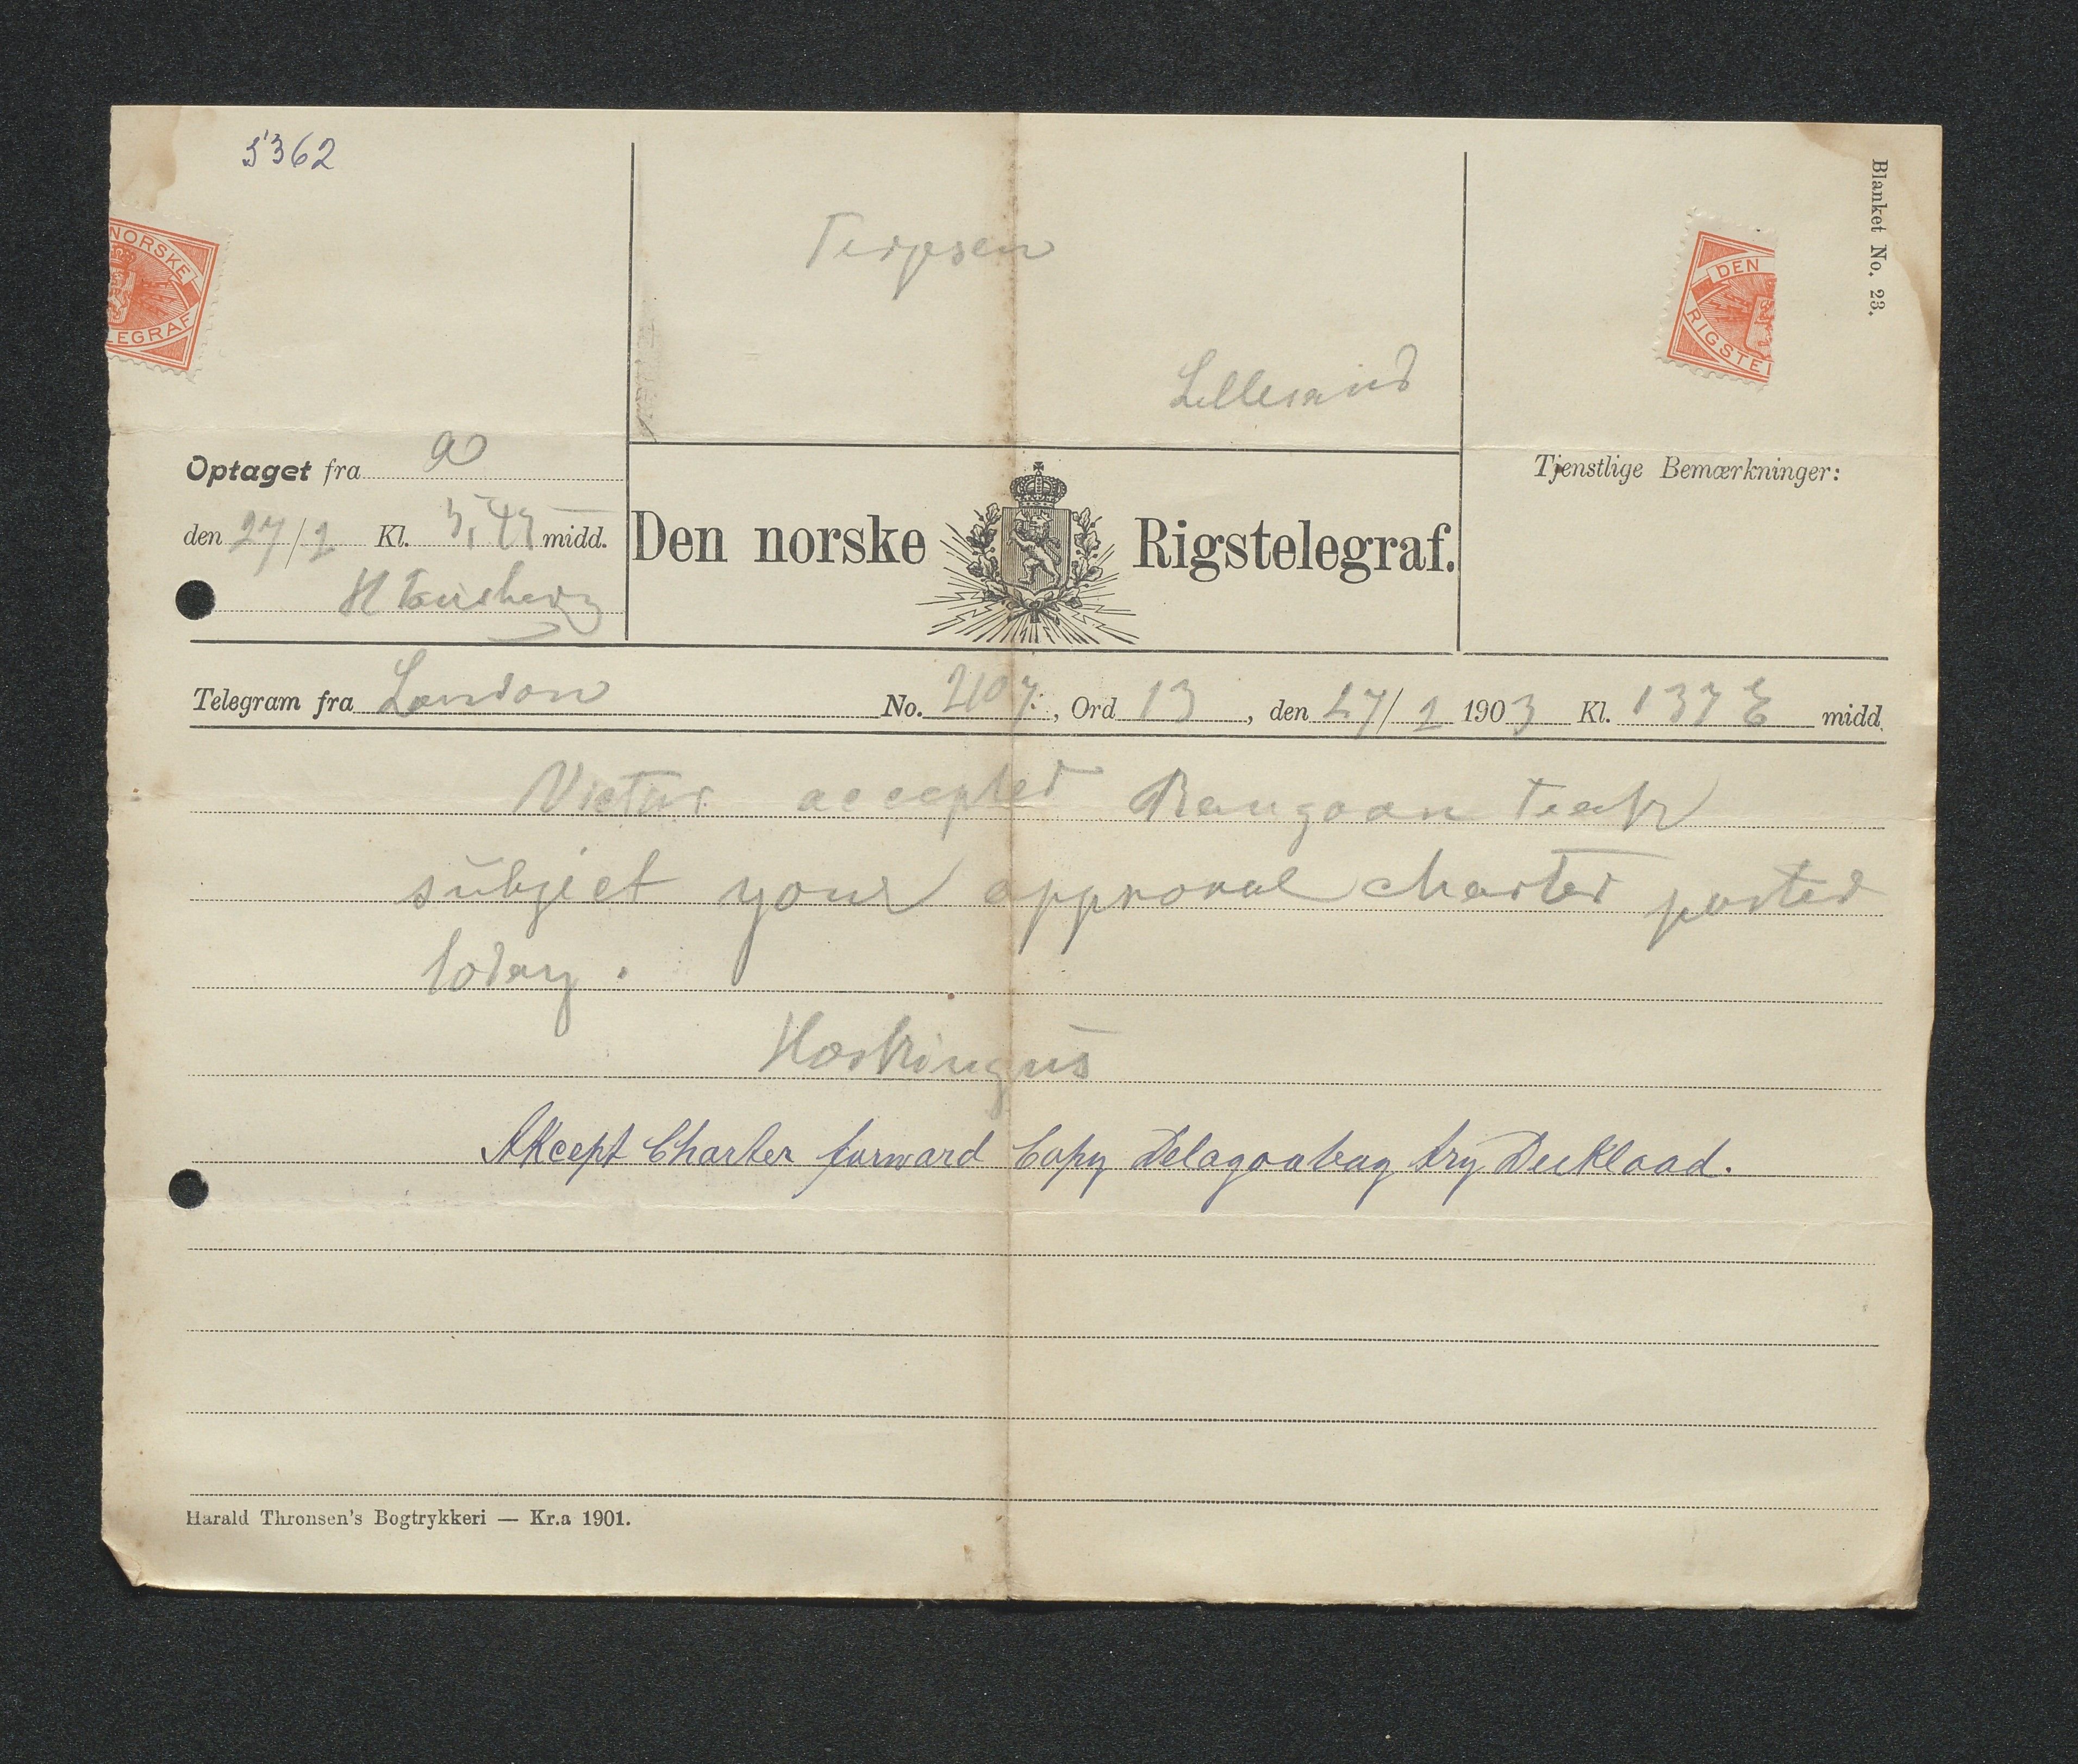 5362
Blanket No. 23.
NORSKE
EGRAF
DEN
RIGSTEL
Terjesen
Lillesand
Optaget fra a
den 27/1 Kl. midd.
Tjenstlige Bemærkninger:
Den norske Rigstelegraf.
Telegram fra London No. 2107, Ord 13, den 27/1 1903 Kl. 137 E midd.
Victor accepted Rangoon teak
subject your approval charter posted
today.
Akcept Charter forward Copy Delagoabay try Deckload.
Harald Thronsen's Bogtrykkeri — Kr.a 1901.